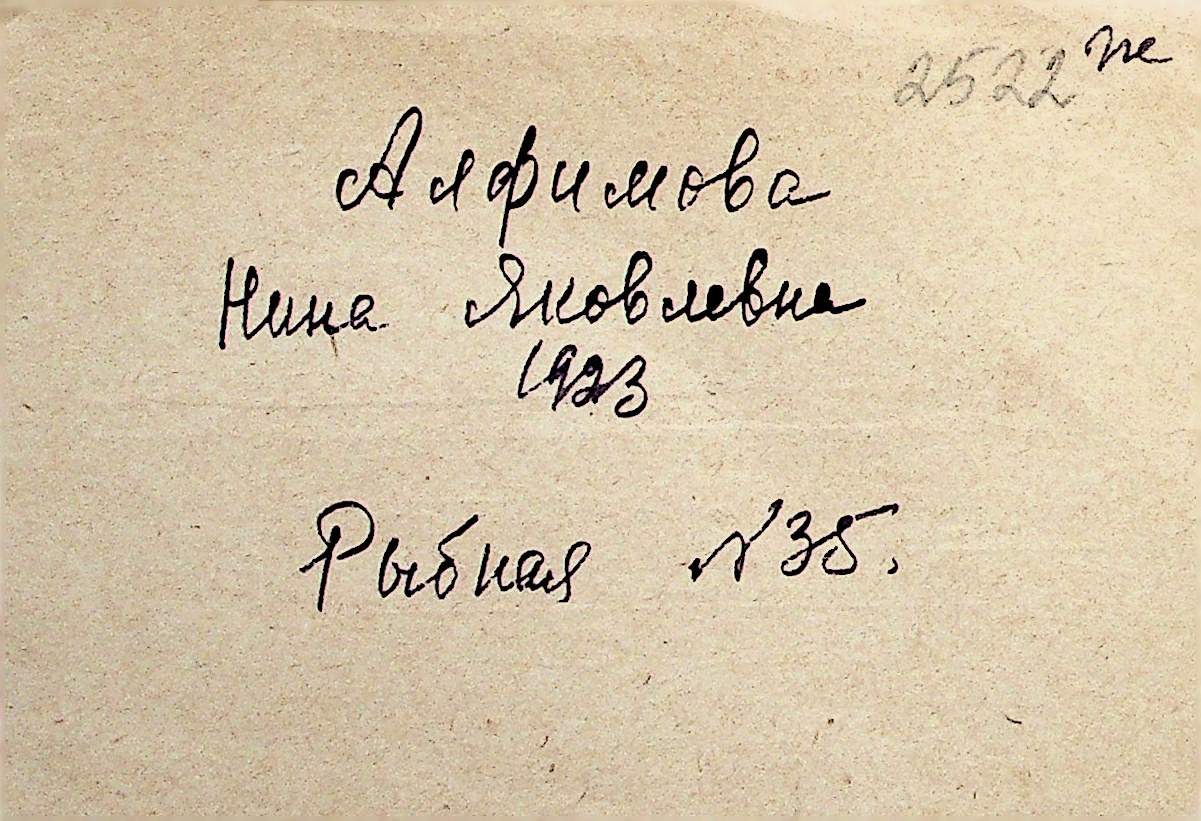 2522 пе
Алфимова
Нина Яковлевна
1923
Рыбная №35.